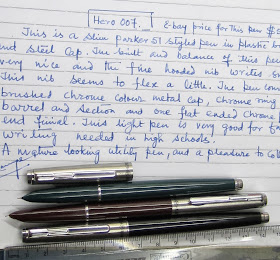 Hero 007. E-bay price for this pen $
This is a slim parker 51 styled pen in plastic b
and steel Cap. The built and balance of this pen
very nice and the fine hooded nib writes
This nib seems to flex a little. The pen com
brushed chrome colour metal cap, chrome ring
barrel and section and one flat ended chrome
end finial. This light pen is very good for
writing needed in high schools.
A mature looking utility pen, and a pleasure to